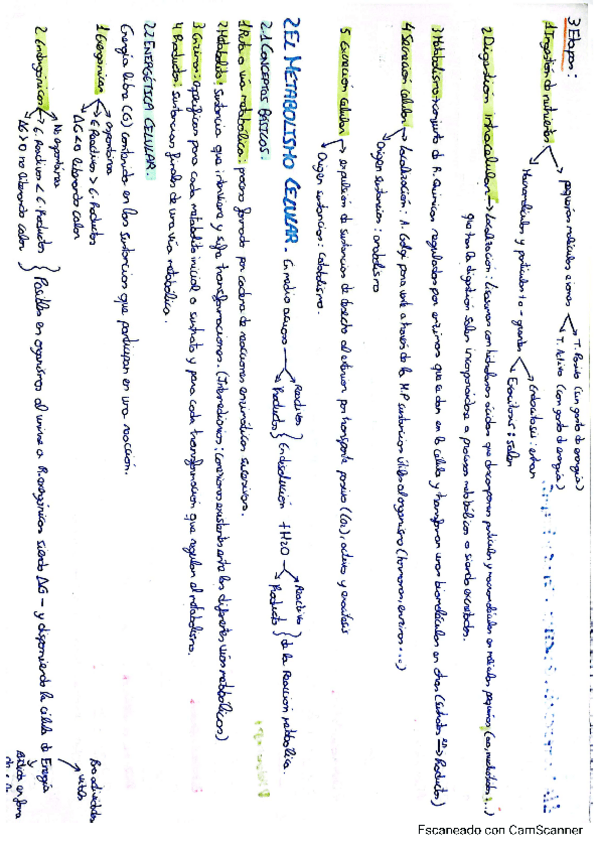 3 Etapas:
1 Ingestión de nutrientes
pequeñas moléculas e iones
T. Pasivo (sin gasto de energía)
T. Activo (con gasto de energía)
Macromoléculas y partículas + o - grandes
Endocitosis: entran
Exocitosis: salen
2 Digestión intracelular → Localización: Lisosomas con hidrolasas ácidas que descomponen partículas y macromoléculas en moléculas pequeñas (aa, monosac...)
tras la digestión salen incorporándose a procesos metabólicos o siendo excretadas.
3 Metabolismo: conjunto de R. Químicas reguladas por enzimas que se dan en la célula y transforman unas biomoléculas en otras (sustratos → Productos)
4 Secreción celular → Localización: A. Golgi para verter a través de la M.P sustancias útiles al organismo (hormonas, enzimas...)
Origen sustancias: anabolismo
5 Excreción celular → expulsión de sustancias de desecho al exterior por transporte pasivo (CO2), activo y exocitosis
Origen sustancias: catabolismo.
2 EL METABOLISMO CELULAR. En medio acuoso
Reactivos
Productos } En disolución + H2O
Reactivo
Producto } de la Reacción metabólica.
2.1 CONCEPTOS BÁSICOS.
1 Ruta o vía metabólica: proceso formado por cadena de reacciones enzimáticas sucesivas.
2 Metabolito: sustancia que interviene y sufre transformaciones. (Intermediarios: conexiones existentes entre las diferentes vías metabólicas)
3 Enzimas: específicas para cada metabolito inicial o sustrato y para cada transformación que regulan al metabolismo.
4 Productos: sustancias finales de una vía metabólica.
2.2 ENERGÉTICA CELULAR.
Energía libre (G) contenida en las sustancias que participan en una reacción.
1 Exergónicas
espontánea
G Reactivos > G. Productos
ΔG < 0 liberando calor
2 Endergónicas
No espontánea
G. Reactivos < G. Productos
ΔG > 0 no liberando calor
} Posibles en organismos al unirse a R. exergónicas siendo ΔG - y disponiendo la célula de Energía
Bioactividades
vitales
Escaneado con CamScanner